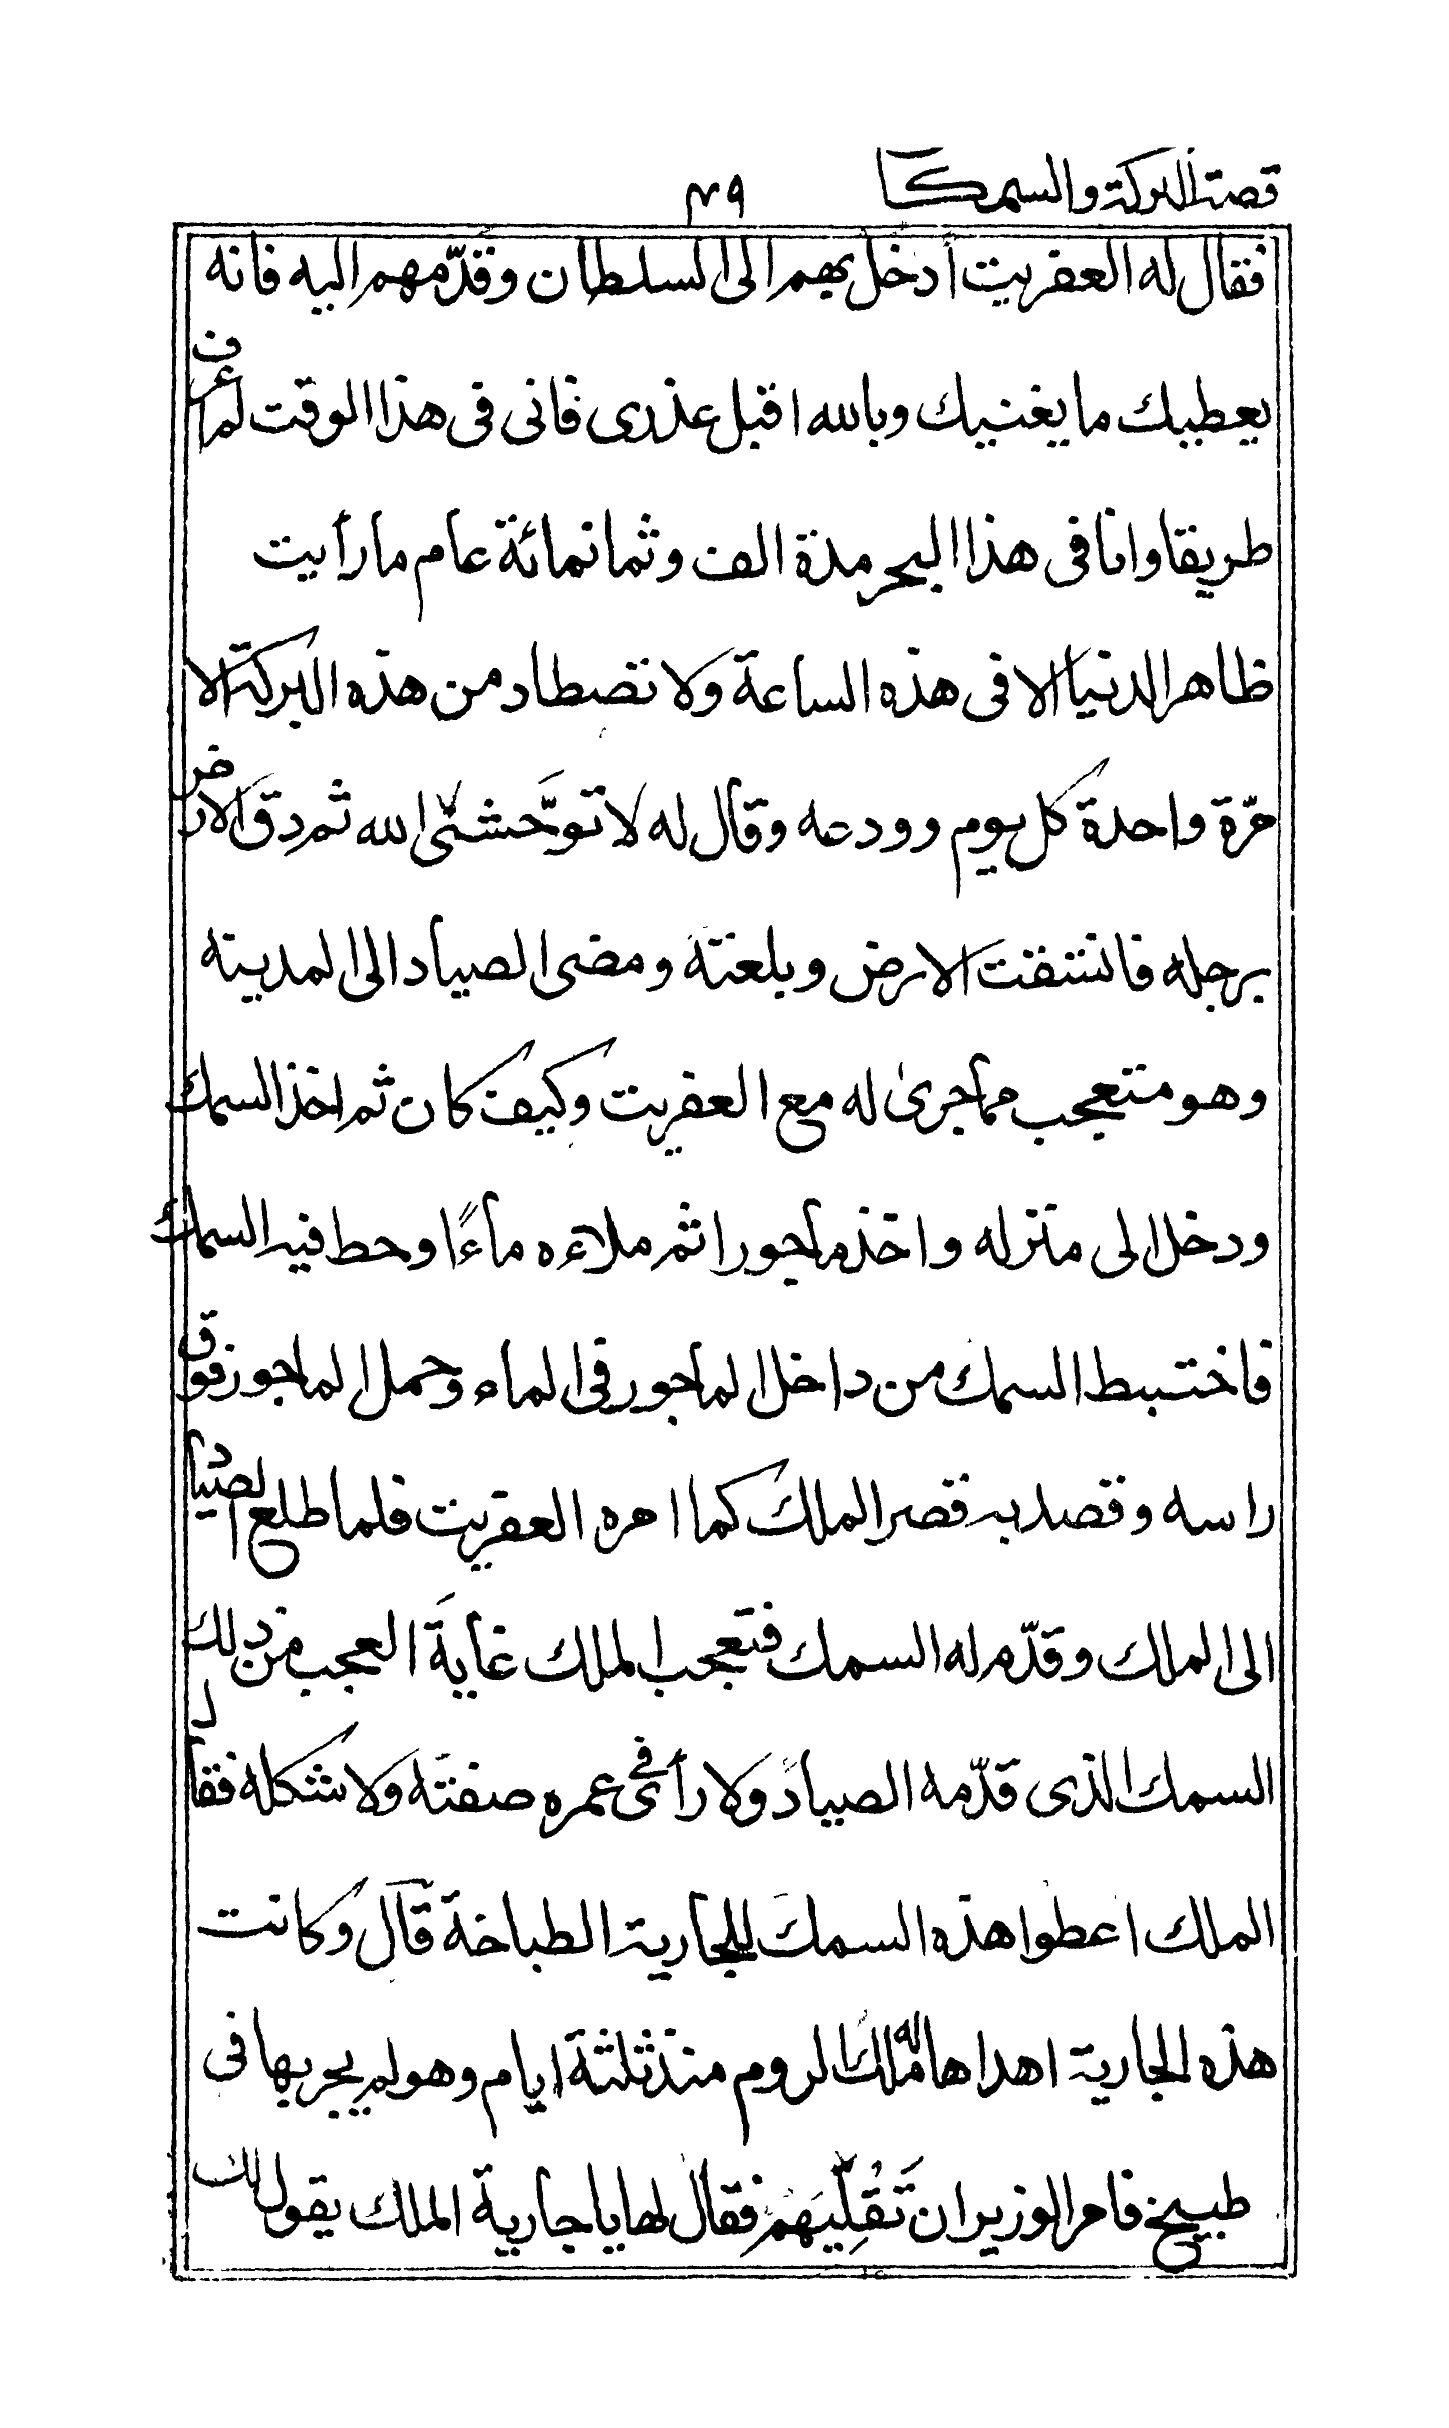 قصة البركة والسمك
٧٩
فقال له العفريت أدخل بهم الى السلطان وقدّمهم اليه فانه
يعطيك ما يغنيك وبالله اقبل عذرى فانى فى هذا الوقت لم اعرف
طريقا وانا فى هذا البحر مدة الف وثمانمائة عام ما رأيت
ظاهر الدنيا الا فى هذه الساعة ولا تصطاد من هذه البركة الا
مرّة واحدة كل يوم وودعه وقال له لا توحّشنى الله ثم دق الارض
برجله فانشقت الارض وبلعته ومضى الصياد الى المدينة
وهو متعجب مما جرى له مع العفريت وكيف كان ثم اخذ السمك
ودخل الى منزله واخذ مأجورا ثم ملاءه ماءًا وحط فيه السمك
فاختبط السمك من داخل المأجور فى الماء وحمل الماجور فوق
راسه وقصد به قصر الملك كما امره العفريت فلما طلع الصياد
الى الملك وقدّم له السمك فتعجب الملك غاية العجب من ذلك
السمك الذى قدّمه الصياد ولا رأى فى عمره صفته ولا شكله فقال
الملك اعطوا هذه السمك للجارية الطباخة قال وكانت
هذه الجارية اهداها له ملك الروم منذ ثلثة ايام وهو لم يجربها فى
طبيخ فامر الوزير ان تَقْلِيَهُمْ فقال لها يا جارية الملك يقول لك